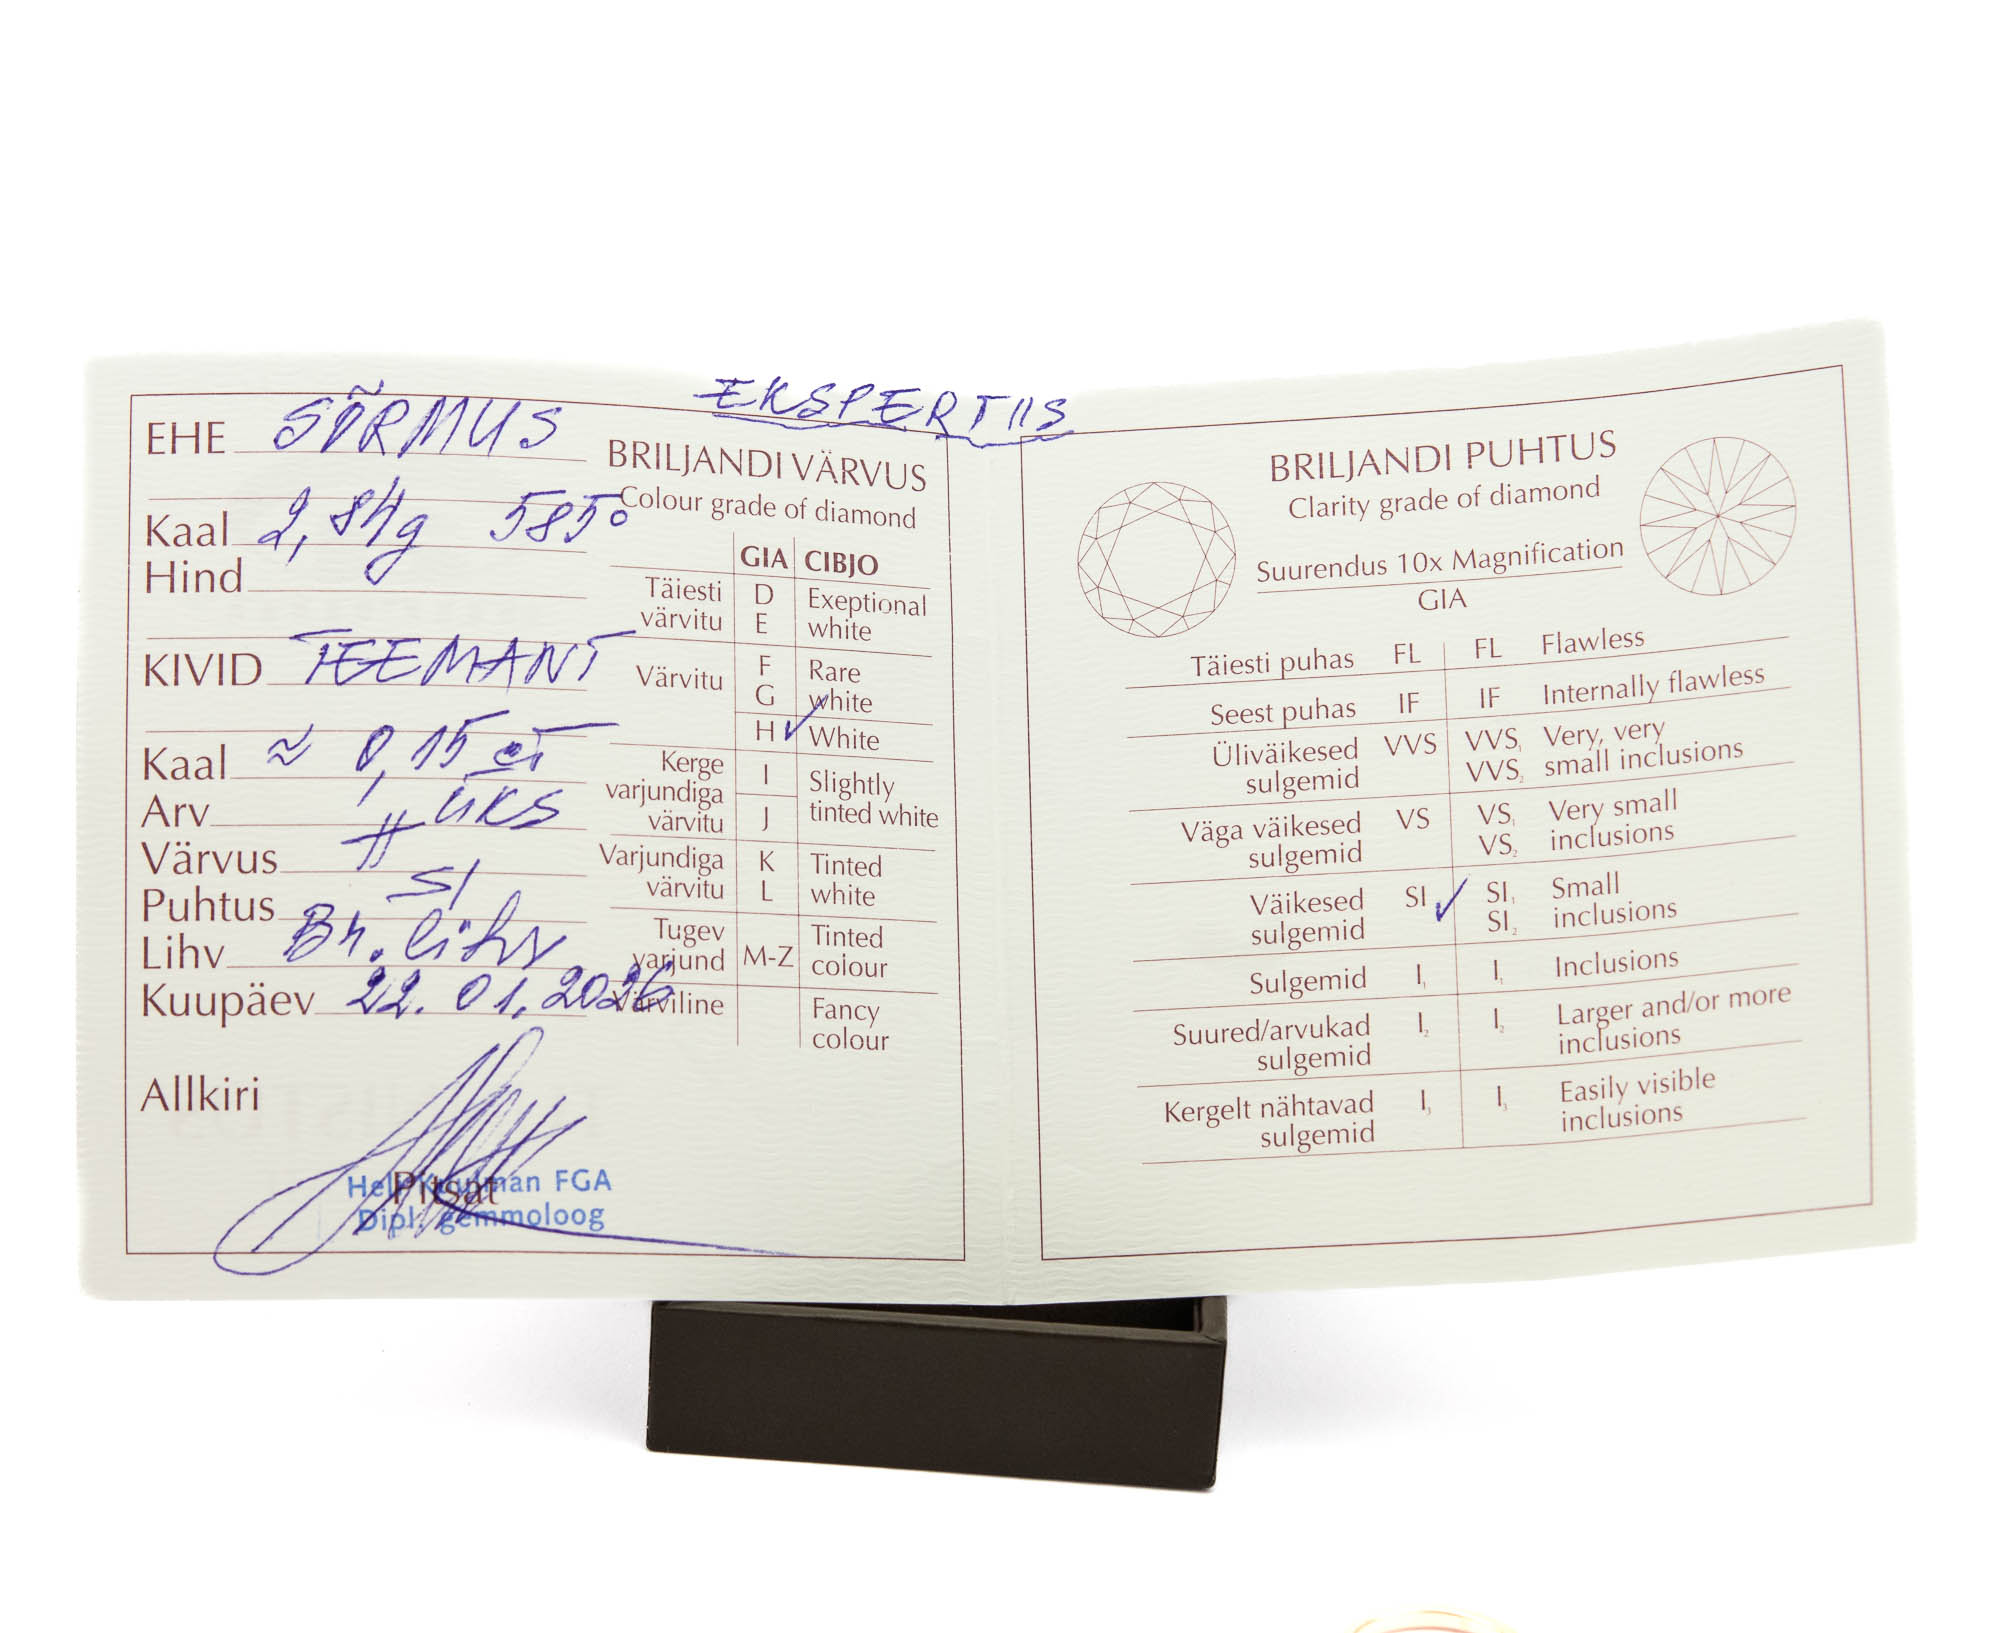 EKSPERTIIS
EHE SÕRMUS
Kaal 2,84g 585°
Hind
KIVID TEEMANT
Kaal ≈ 0,15 ct
Arv ÜKS
Värvus H
Puhtus SI
Lihv Br. lihv
Kuupäev 22.01.2026
Allkiri
Pitsat
FGA
Dipl. gemmoloog
BRILJANDI VÄRVUS
Colour grade of diamond
GIA CIBJO
Täiesti värvitu D E Exeptional white
Värvitu F G Rare white
H ✓ White
Kerge varjundiga värvitu I J Slightly tinted white
Varjundiga värvitu K L Tinted white
Tugev varjund M-Z Tinted colour
Värviline Fancy colour
BRILJANDI PUHTUS
Clarity grade of diamond
Suurendus 10x Magnification
GIA
Täiesti puhas FL FL Flawless
Seest puhas IF IF Internally flawless
Üliväikesed sulgemid VVS VVS₁ VVS₂ Very, very small inclusions
Väga väikesed sulgemid VS VS₁ VS₂ Very small inclusions
Väikesed sulgemid SI ✓ SI₁ SI₂ Small inclusions
Sulgemid I₁ I₁ Inclusions
Suured/arvukad sulgemid I₂ I₂ Larger and/or more inclusions
Kergelt nähtavad sulgemid I₃ I₃ Easily visible inclusions